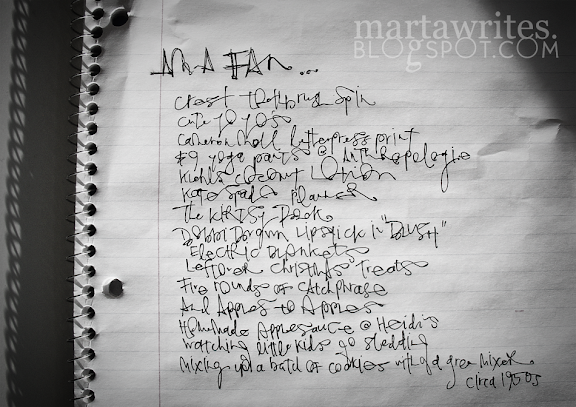 martawrites.
BLOGSPOT.COM
AM A FAN...
crest toothbrush spin
cute yo yos
Cameron Moll letterpress print
$9 yoga pants @ Anthropologie
Kiehls coconut Lotion
Kate Spade planner
The KIRTSY Book
Bobbi Brown Lipstick in "BLUSH"
Electric Blankets
Leftover Christmas Treats
Five rounds of catchphrase
And Apples to Apples
Homemade Applesauce @ Heidi's
Watching little kids go sledding
Mixing up a batch of cookies with a green mixer
circa 1950s